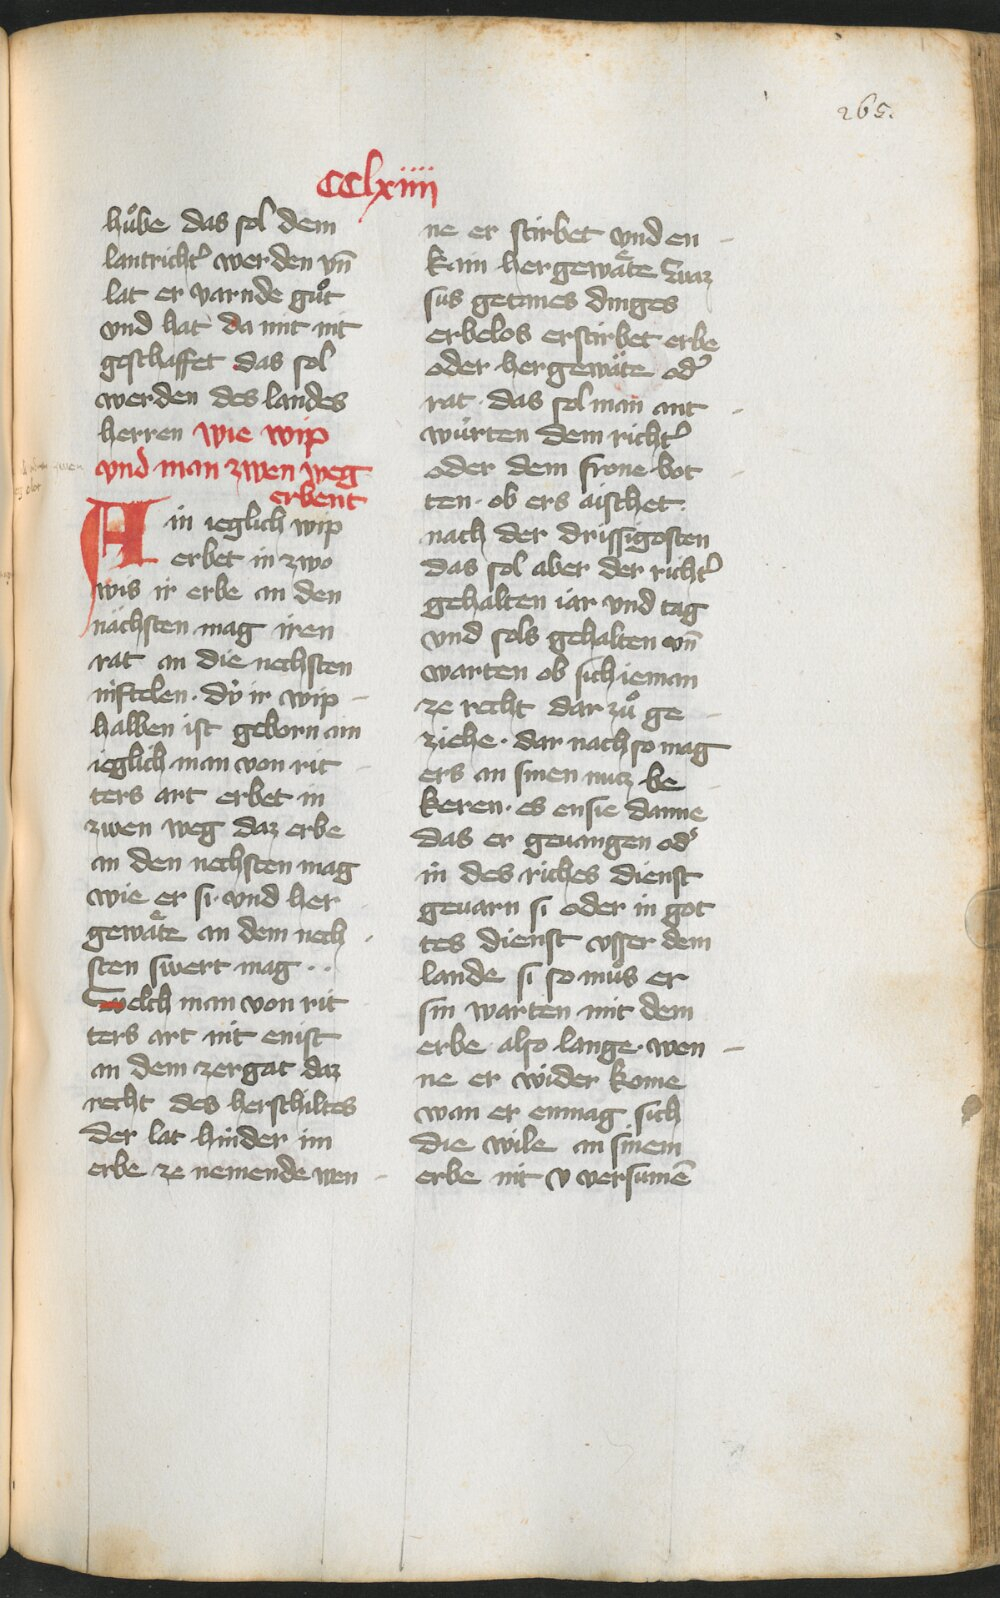 265.
CCLxiiii
hůbe das sol dem
lantricht᷑ werden vn̄
lat er varnde gůt
vnd hat da mit nit
geschaffet das sol
werden des landes
herren wie wip
vnd man zwen weg
erbent
Ain ieglich wip
erbet in zwo
wis ir erbe an den
nächsten mag iren
rat an die nechsten
niftelen · dÿ ir wip
halben ist geborn ain
ieglich man von rit
ters art erbet in
zwen weg daz erbe
an den nechsten mag
wie er si · vnd her
gewäte an dem nech
sten swert mag · ·
Swelch man von rit
ters art nit enist
an dem zergat daz
recht des herschiltes
der lat hinder im
erbe ze nemende wen
ne er stirbet vnd en
kain hergewäte Swaz
sus getanes dinges
erbelos erstirbet erbe
oder hergewäte od᷑
rat · das sol man ant
würten dem richt᷑
oder dem frone bot
ten · ob ers aischet ·
nach der drissigosten
das sol aber der richt᷑
gehalten iar vnd tag
vnd sols gehalten vn̄
warten ob sich ieman
ze recht dar zů ge
ziehe · dar nach so mag
ers an sinen nutz be
keren · es ensie danne
das er geuangen od᷑
in des riches dienst
geuarn si oder in got
tes dienst vsser dem
lande si so můs er
sin warten mit dem
erbe also lange · wen
ne er wider kome
wan er enmag sich
die wile an sinem
erbe nit v versumē